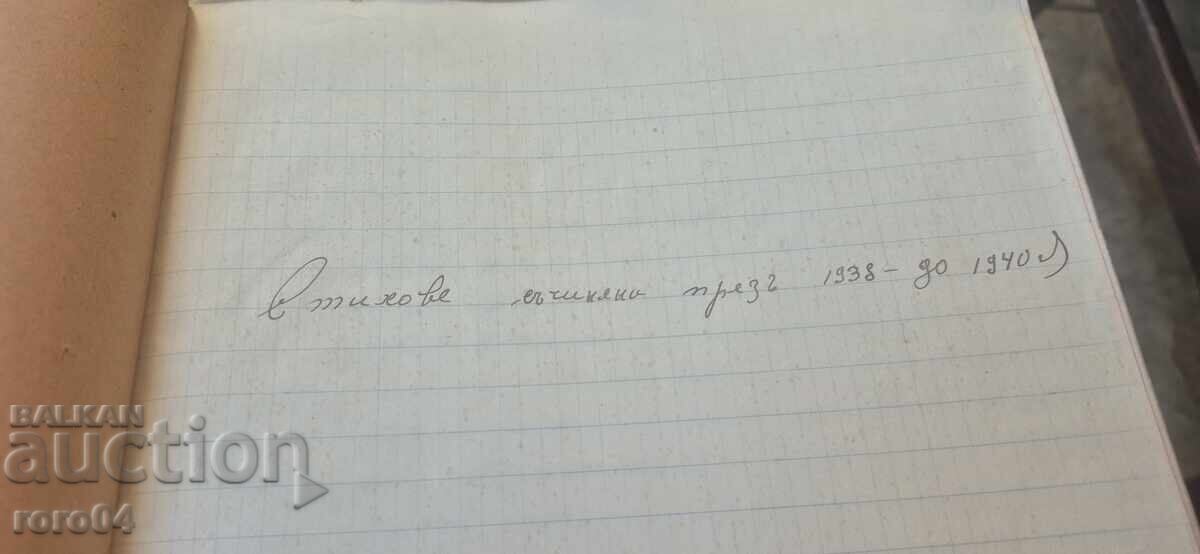 Стихове съчинени презъ 1938 - до 1940 г)
BALKAN
auction
roro04